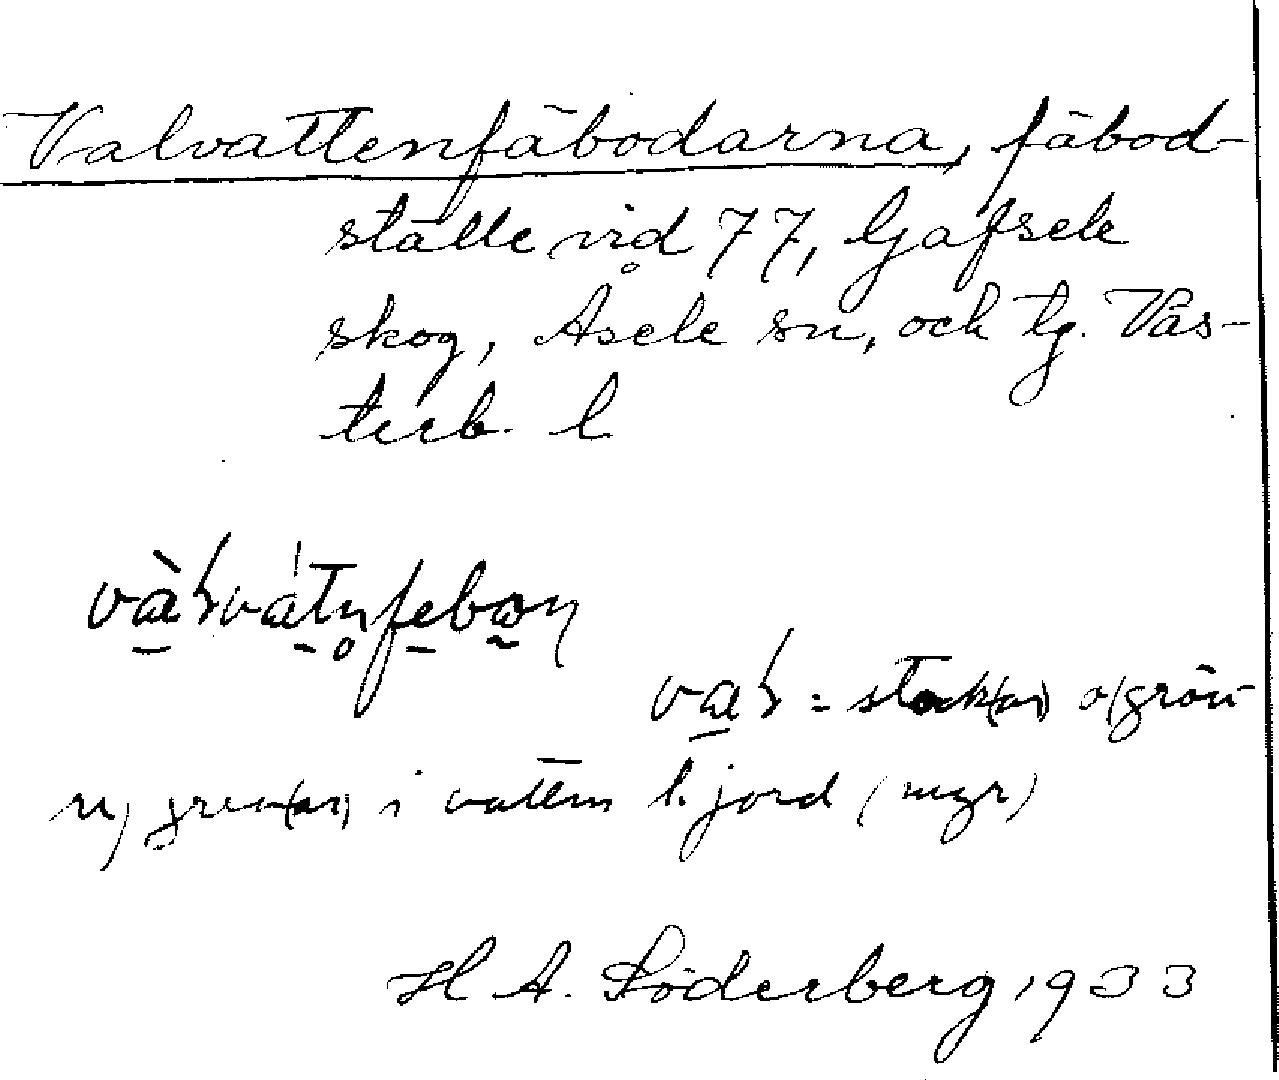 Valvattenfäbodarna, fäbod-
ställe vid 77, Gafsele
skog, Åsele sn, och tg. Väs-
terb. l.
= stock(ar) o/
gren(ar) i vatten l. jord (mgr)
H A. Söderberg 1933